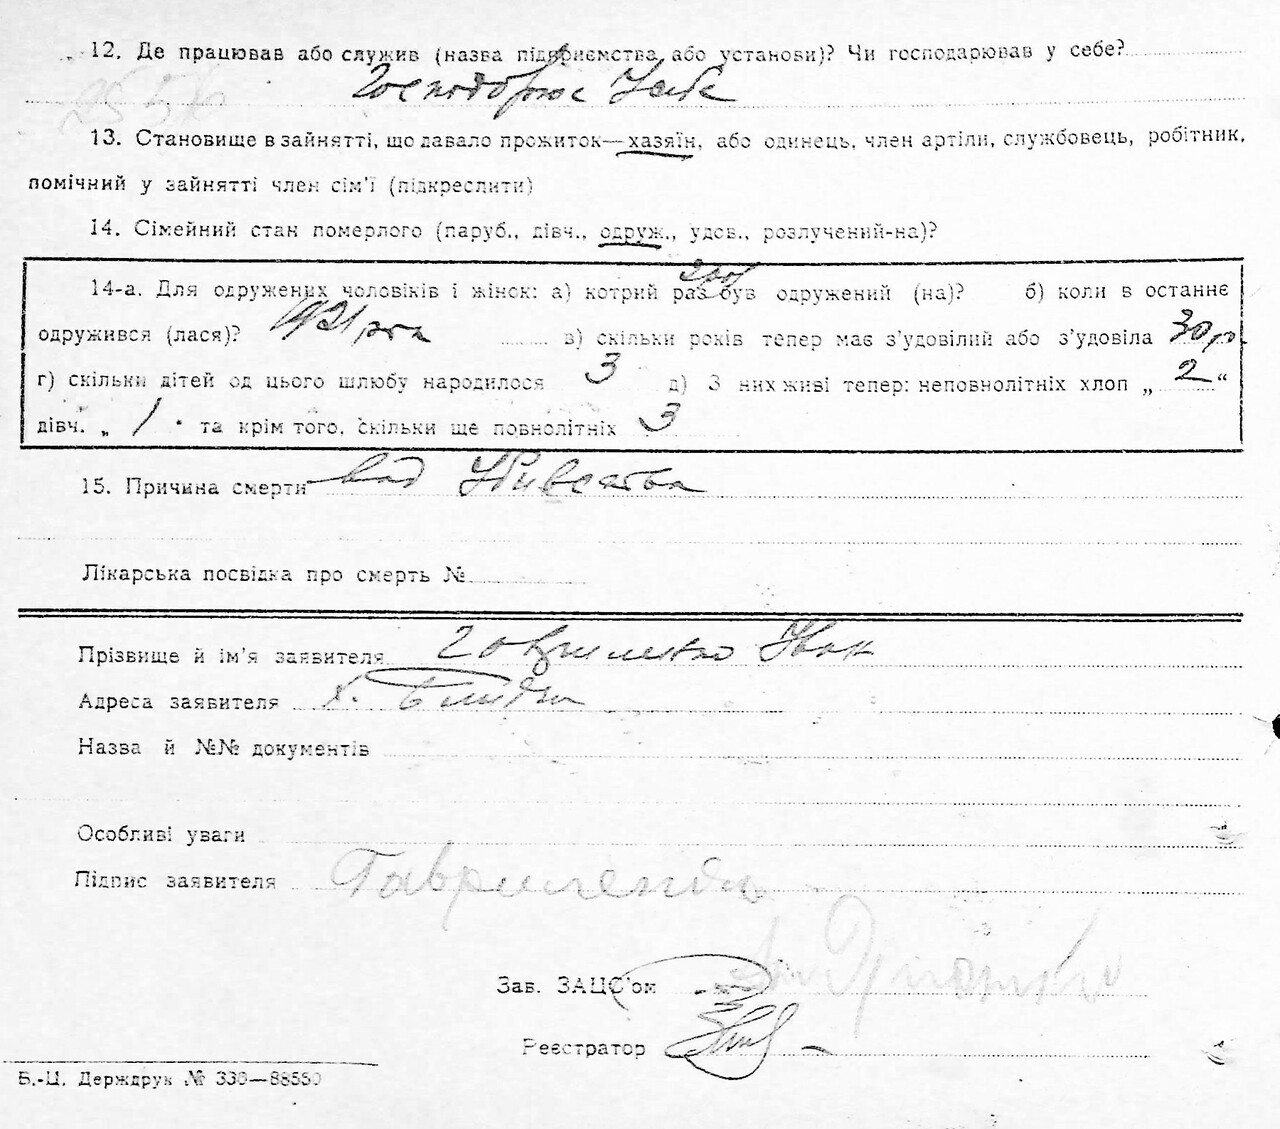 12. Де працював або служив (назва підприємства або установи)? Чи господарював у себе?
13. Становище в зайнятті, що давало прожиток—хазяїн, або одинець, член артіли, службовець, робітник,
помічний у зайнятті член сім'ї (підкреслити)
14. Сімейний стан померлого (паруб., дівч., одруж., удов., розлучений-на)?
14-а. Для одружених чоловіків і жінок: а) котрий раз був одружений (на)? б) коли в останнє
одружився (лася)? 1921 рок в) скільки років тепер має з'удовілий або з'удовіла 30 р.
г) скільки дітей од цього шлюбу народилося 3 д) З них живі тепер: неповнолітніх хлоп „ 2 “
дівч. „ 1 “ та крім того, скільки ще повнолітніх 3
15. Причина смерти від Убивства
Лікарська посвідка про смерть №
Прізвище й ім'я заявителя Гавриленко Іван
Адреса заявителя х.
Назва й №№ документів
Особливі уваги
Підпис заявителя Гавриленко
Зав. ЗАЦС'ом
Реєстратор
Б.-Ц. Держдрук № 330—88550